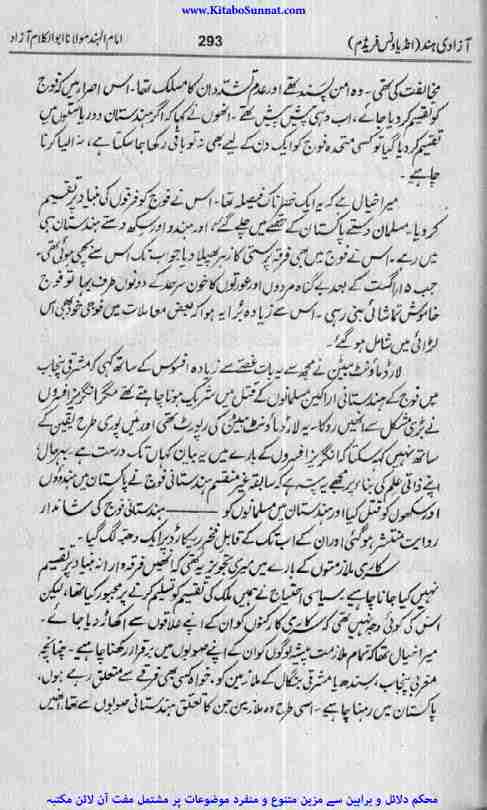 www.KitaboSunnat.com
آزادی ہند (انڈیا ونس فریڈم) 293 امام الہند مولانا ابوالکلام آزاد
مخالفت کی تھی۔ وہ امن پسند تھے اور عدم تشدد ان کا مسلک تھا۔ اس اصرار میں کہ فوج
کو تقسیم کر دیا جائے، اب وہی پیش پیش تھے۔ انھوں نے کہا کہ اگر ہندستان دو ریاستوں میں
تقسیم کر دیا گیا تو کسی متحدہ فوج کو ایک دن کے لیے بھی نہ تو باقی رکھا جا سکتا ہے، نہ ایسا کرنا
چاہیے۔
میرا خیال ہے کہ یہ ایک خطرناک فیصلہ تھا۔ اس نے فوج کو فرقوں کی بنیاد پر تقسیم
کر دیا۔ مسلمان دستے پاکستان کے حصے میں چلے گئے، اور ہندو اور سکھ دستے ہندستان ہی
میں رہے۔ اس نے فوج میں بھی فرقہ پرستی کا زہر پھیلا دیا جو اب تک اس سے بچی ہوئی تھی۔
جب ۱۵ اگست کے بعد بے گناہ مردوں اور عورتوں کا خون سرحد کے دونوں طرف بہا تو فوج
خاموش تماشائی بنی رہی۔ اس سے زیادہ بُرا یہ ہوا کہ بعض معاملات میں فوجی خود بھی اس
لڑائی میں شامل ہو گئے۔
لارڈ ماؤنٹ بیٹن نے مجھ سے یہ بات غصے سے زیادہ افسوس کے ساتھ کہی کہ مشرقی پنجاب
میں فوج کے ہندستانی اراکین مسلمانوں کے قتل میں شریک ہونا چاہتے تھے مگر انگریز افسروں
نے بڑی مشکل سے انھیں روکا۔ یہ لارڈ ماؤنٹ بیٹن کی رپورٹ تھی اور میں پوری طرح یقین کے
ساتھ نہیں کہہ سکتا کہ انگریز افسروں کے بارے میں یہ بیان کہاں تک درست ہے۔ بہرحال
اپنے ذاتی علم کی بناء پر مجھے یہ پتہ ہے کہ سابقہ غیر منقسم ہندستانی فوج نے پاکستان میں ہندوؤں
اور سکھوں کو قتل کیا اور ہندستان میں مسلمانوں کو ——— ہندستانی فوج کی شاندار
روایت منتشر ہو گئی اور ان کے اب تک کے قابل فخر ریکارڈ پر ایک دھبہ لگ گیا۔
سرکاری ملازمتوں کے بارے میں میری تجویز یہ تھی کہ انھیں فرقہ وارانہ بنیاد پر تقسیم
نہیں کیا جانا چاہیے۔ سیاسی احتیاج نے ہمیں ملک کی تقسیم کو تسلیم کرنے پر مجبور کیا تھا، لیکن
اس کی کوئی وجہ نہیں تھی کہ سرکاری کارکنوں کو ان کے اپنے علاقوں سے اکھاڑ دیا جائے۔
میرا خیال تھا کہ تمام ملازمت پیشہ لوگوں کو ان کے اپنے صوبوں میں برقرار رکھنا چاہیے۔ چنانچہ
مغربی پنجاب، سندھ یا مشرقی بنگال کے ملازمین کو، خواہ کسی بھی فرقے سے متعلق رہے ہوں،
پاکستان میں رہنا چاہیے۔ اسی طرح وہ ملازمین جن کا تعلق ہندستانی صوبوں سے تھا، انھیں
محکم دلائل و براہین سے مزین متنوع و منفرد موضوعات پر مشتمل مفت آن لائن مکتبہ